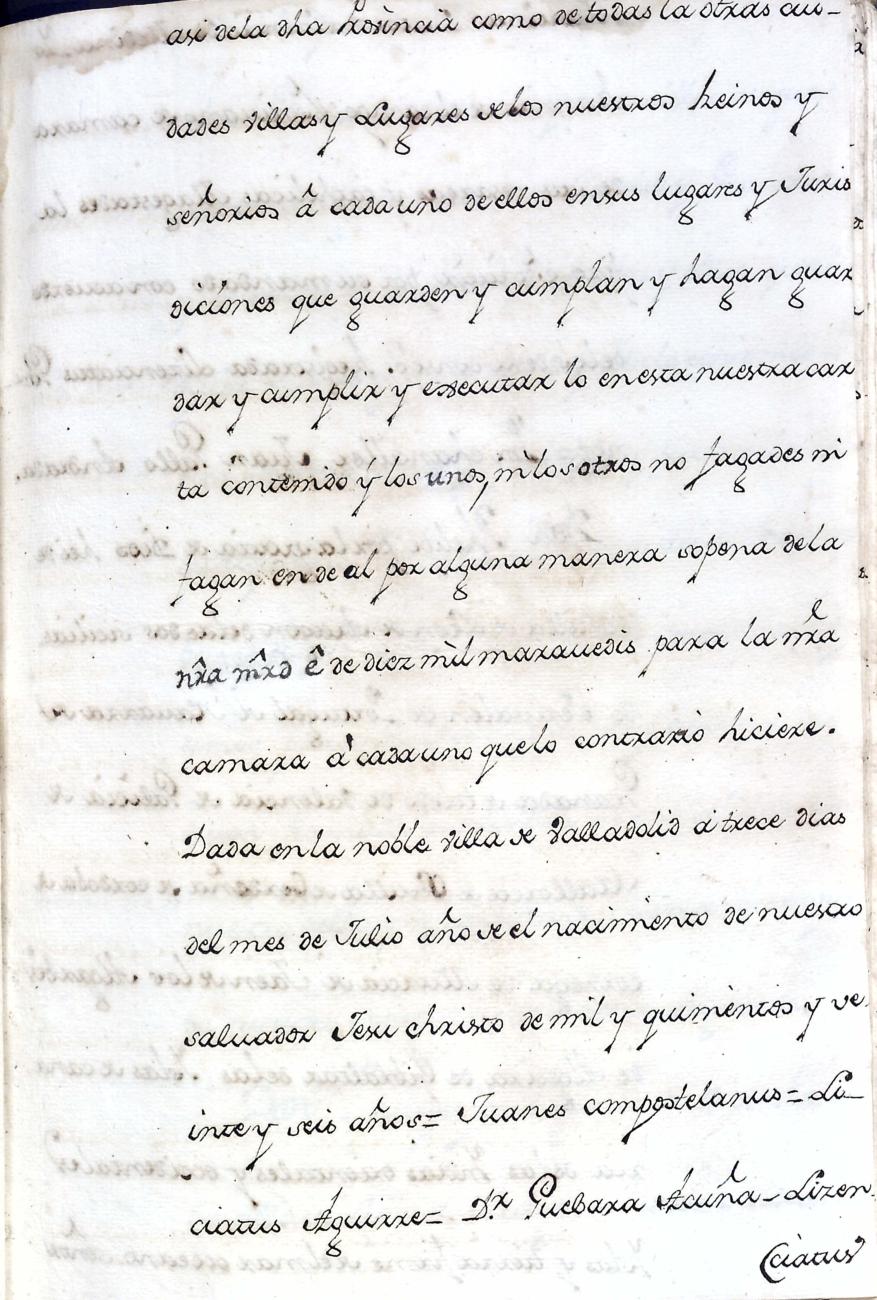 asi dela dha Provincia como de todas la otras ciu-
dades villas y Lugares de los nuestros Reinos y
señorios â cada uno de ellos en sus lugares y Juris
diciones que guarden y cumplan y hagan guar
dar y cumplir y executar lo en esta nuestra car
ta contenido y los unos, ni los otros no fagades ni
fagan en de al por alguna manera sopena de la
nr̃a mr̃d ê de diez mil maravedis para la nr̃a
camara á cada uno que lo contrario hiciere.
Dada en la noble villa de Valladolid á trece dias
del mes de Julio año de el nacimiento de nuestro
saluador Jesu christo de mil y quinientos y ve
inte y seis años= Juanes compostelanus= Li-
ciatus Aguirre= D.r Guebara Acuña- Lizen
ciatus